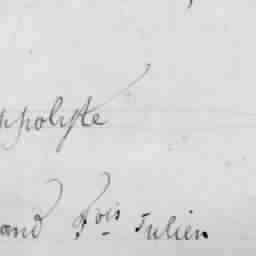 ppolyte
and fois Julien